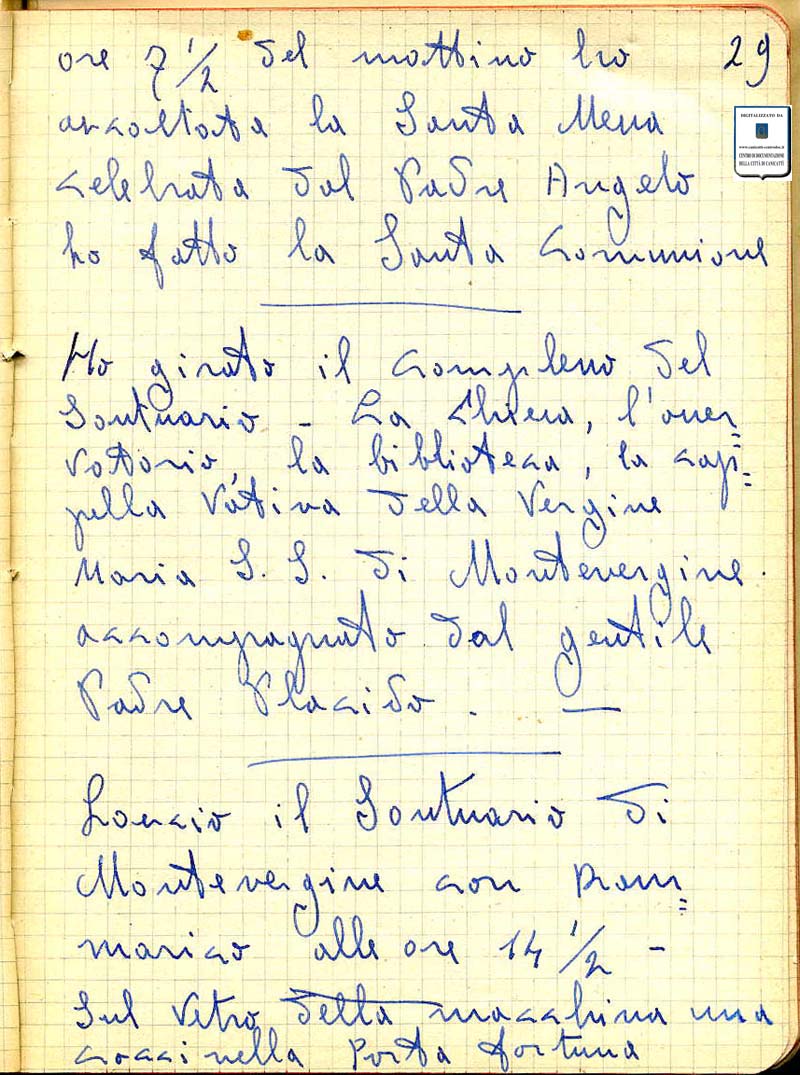 ore 7 1/2 del mattino ho 29
ascoltata la Santa Messa
celebrata dal Padre Angelo
ho fatto la Santa Comunione
Ho girato il complesso del
Santuario - La Chiesa, l'osser=
vatorio, la biblioteca, la cap=
pella Votiva della Vergine
Maria S. S. di Montevergine.
accompagnato dal gentile
Padre Placido. —
Lascio il Santuario di
Montevergine con
marico alle ore 14 1/2 -
Sul Vetro della macchina una
coccinella Porta fortuna
DIGITALIZZATO DA
CENTRO DI DOCUMENTAZIONE
DELLA CITTÀ DI CANICATTÌ